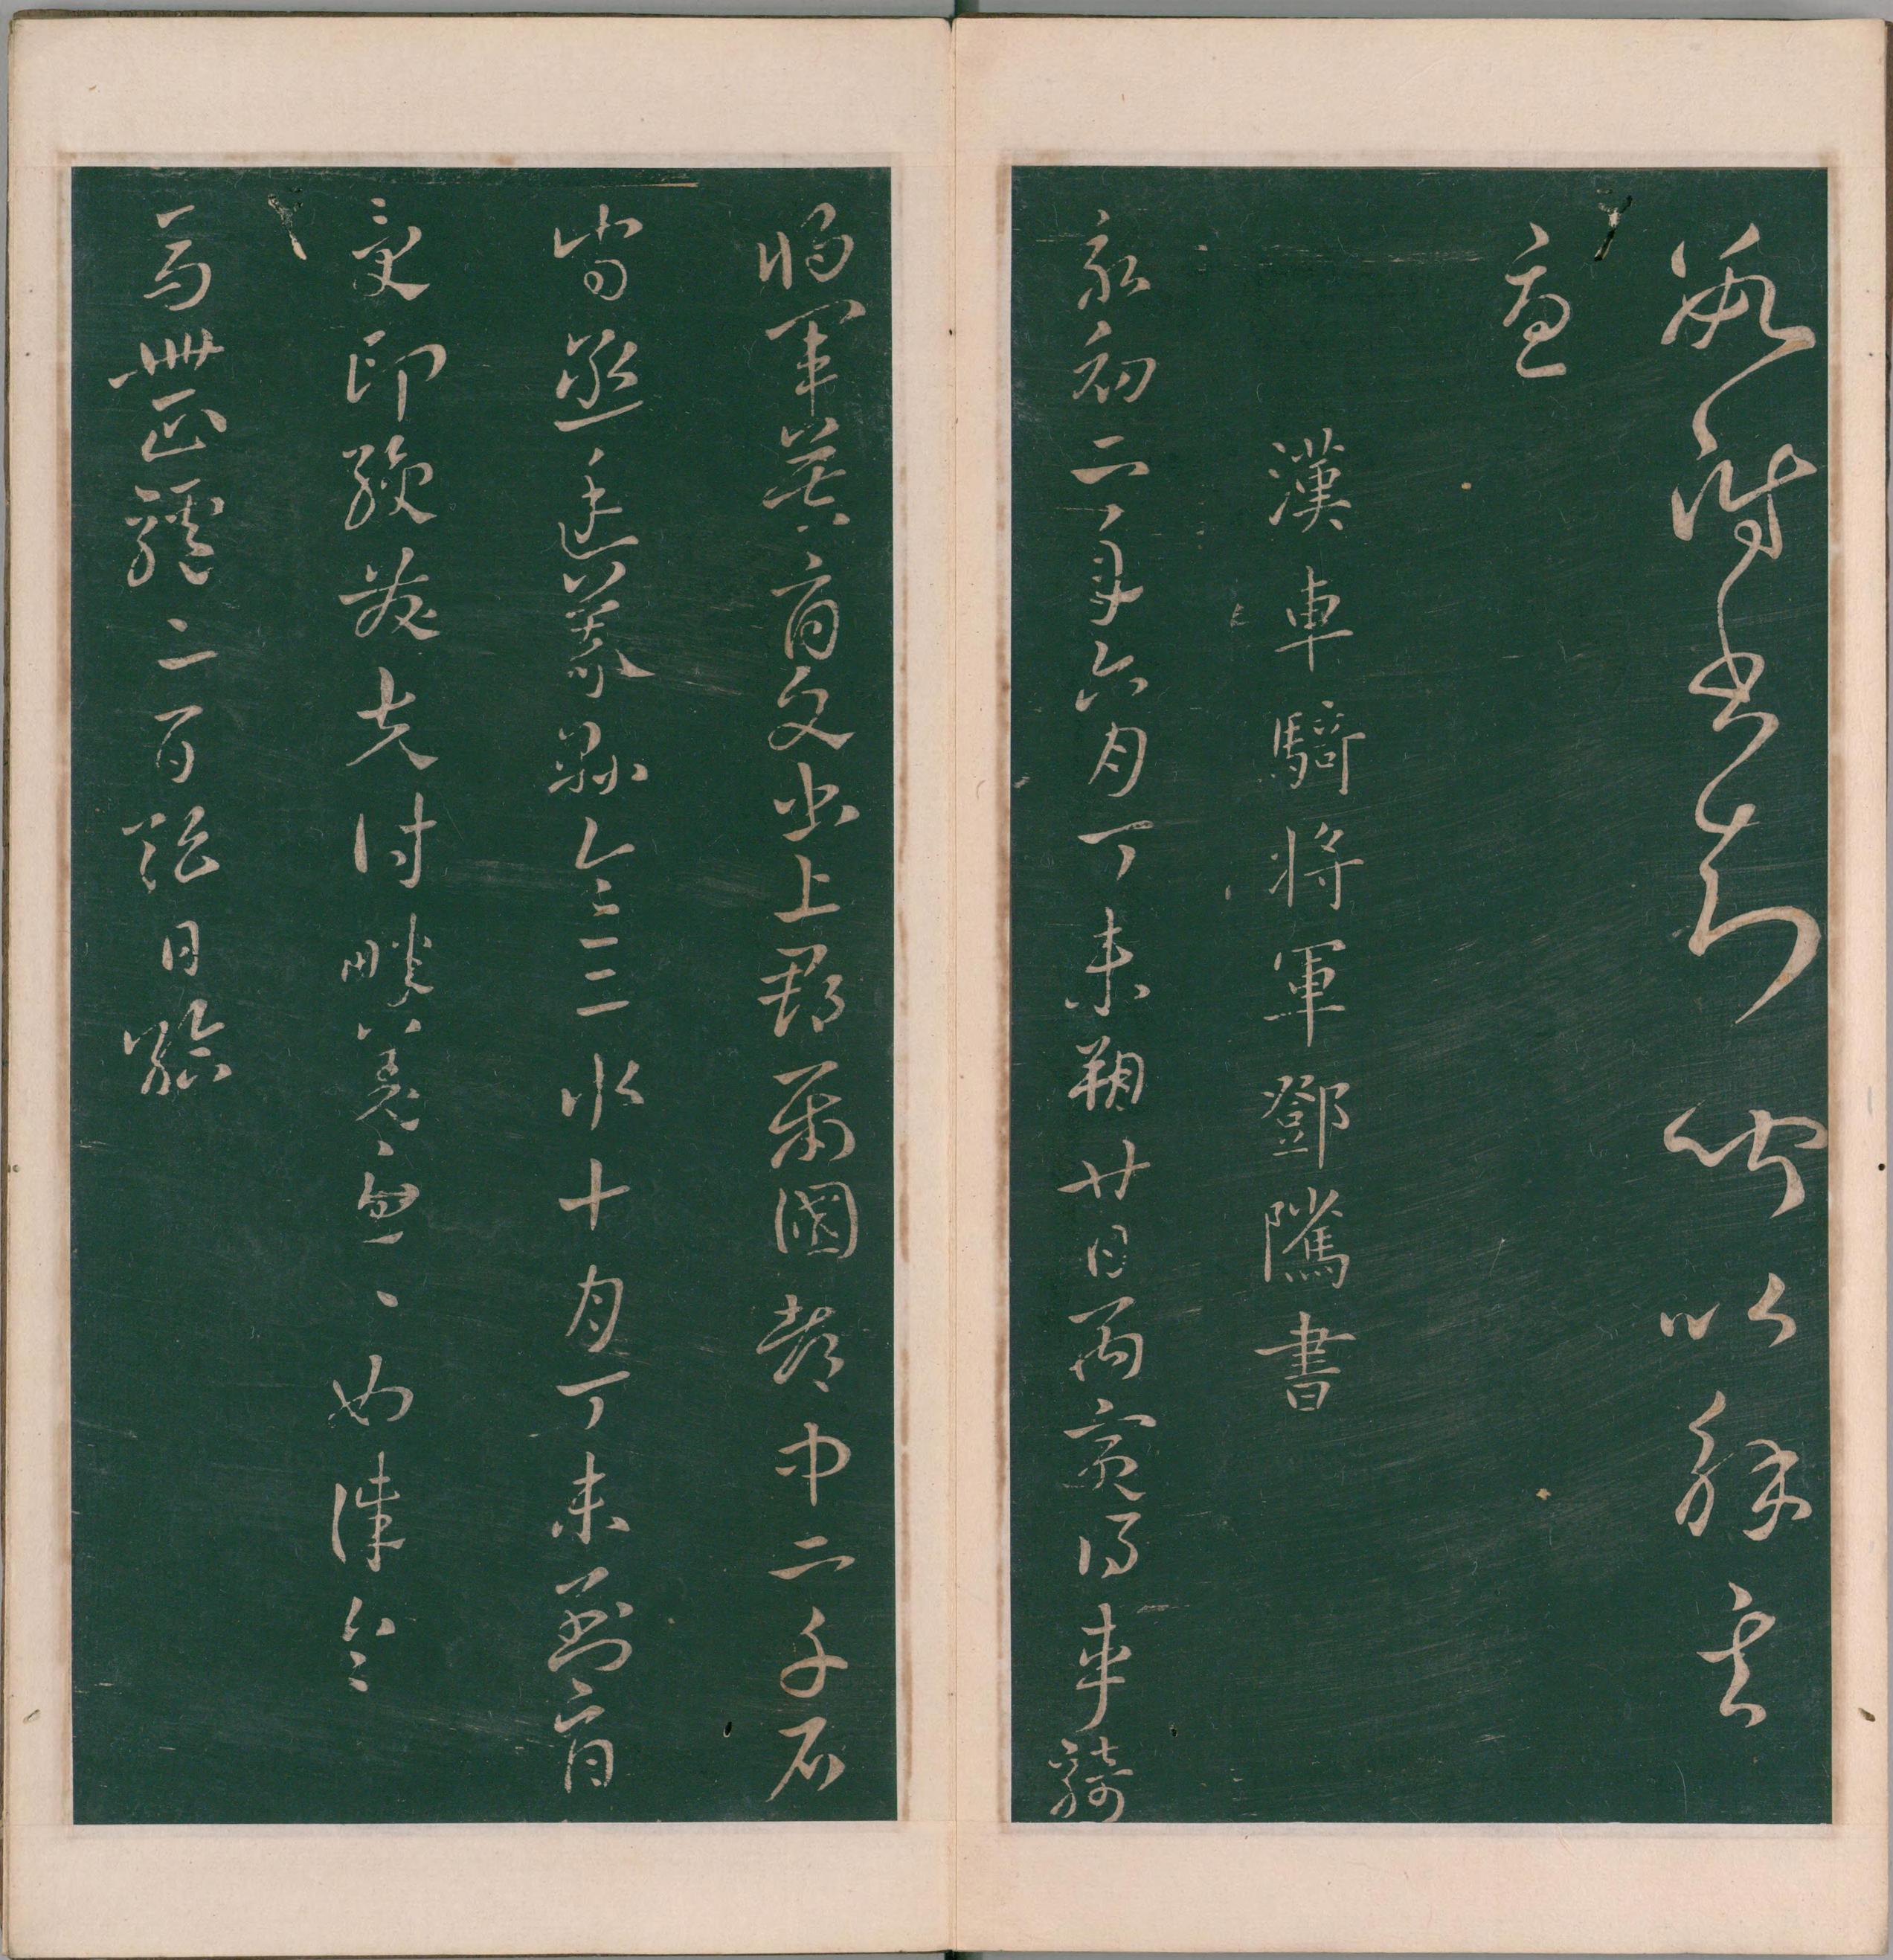 數附書知問以解其
憂
漢車騎將軍鄧騭書
永初二年六月丁未朔廿日丙寅得車騎
將軍莫府文書上郡屬國都中二千石
守丞廷義縣令三水十月丁未到府
受印綬發夫討畔羌急〻如律令
馬卌匹驢二百頭日給